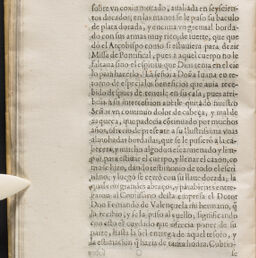 ſobre vn coxin morado, aualiada en ſeyſcien-
tos ducados; en las manos ſe le puſo ſu baculo
de plata dorada, y encima vn gremial borda-
do con ſus armas muy rico, de ſuerte, que que
dò el Arçobiſpo como ſi eſtuuiera para dezir
Miſſa de Pontifical, pues a aquel cuerpo no le
faltaua ſino el eſpiritu, que Dios tenia en el cie
lo para hazerlo. La ſeñora Doña Iuana en re-
torno de eſpeciales beneficios que auia
bido deſpues de tenerle en ſu caſa, pues
han interceſsion auiele quitado nueſtro
Señor vn continuo dolor de cabeça, y mal de
xaqueca, que padecia continuado por muchos
años, ofrecio de preſente a ſu Iluſtriſsima vnas
almohadas bordadas, que ſe le puſieron a la ca-
becera, y mucho algodon eſcarmenado, y len-
para veſtir el cuerpo, y llenar el caxon, co-
mo ſe hizo, dando teſtimonio de todo el eſcri-
uano, y luego ſe cerrò con ſu llaue, dando la
qual con grandes abraços, y parabienes entre-
garon al Comiſſario deſta empreſa el Doctor
Don Fernando de Valençuela mi hermano, q̃
la recibio, y ſe la puſo al cuello, ſignificando
con eſto el cuydado que ofrecia poner de ſu
parte, haſta la fiel entrega de aquel teſoro, y
la eſtimacion q̃ hazia de tanta honra. Cubrio-
ſe